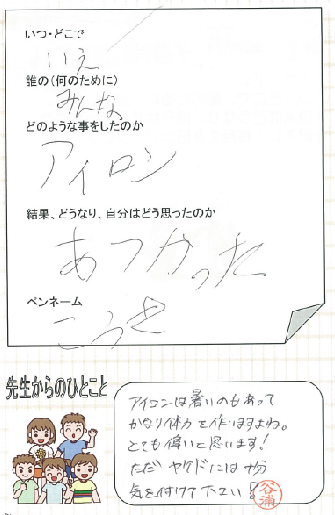 いつ・どこで
いえ
誰の(何のために)
みんな
どのような事をしたのか
アイロン
結果、どうなり、自分はどう思ったのか
あつかった
ペンネーム
こうき
先生からのひとこと
アイロンは暑いのもあって
かなり体力を使いますよね。
とても偉いと思います!
ただヤケドには十分
気を付けて下さい!
谷浦